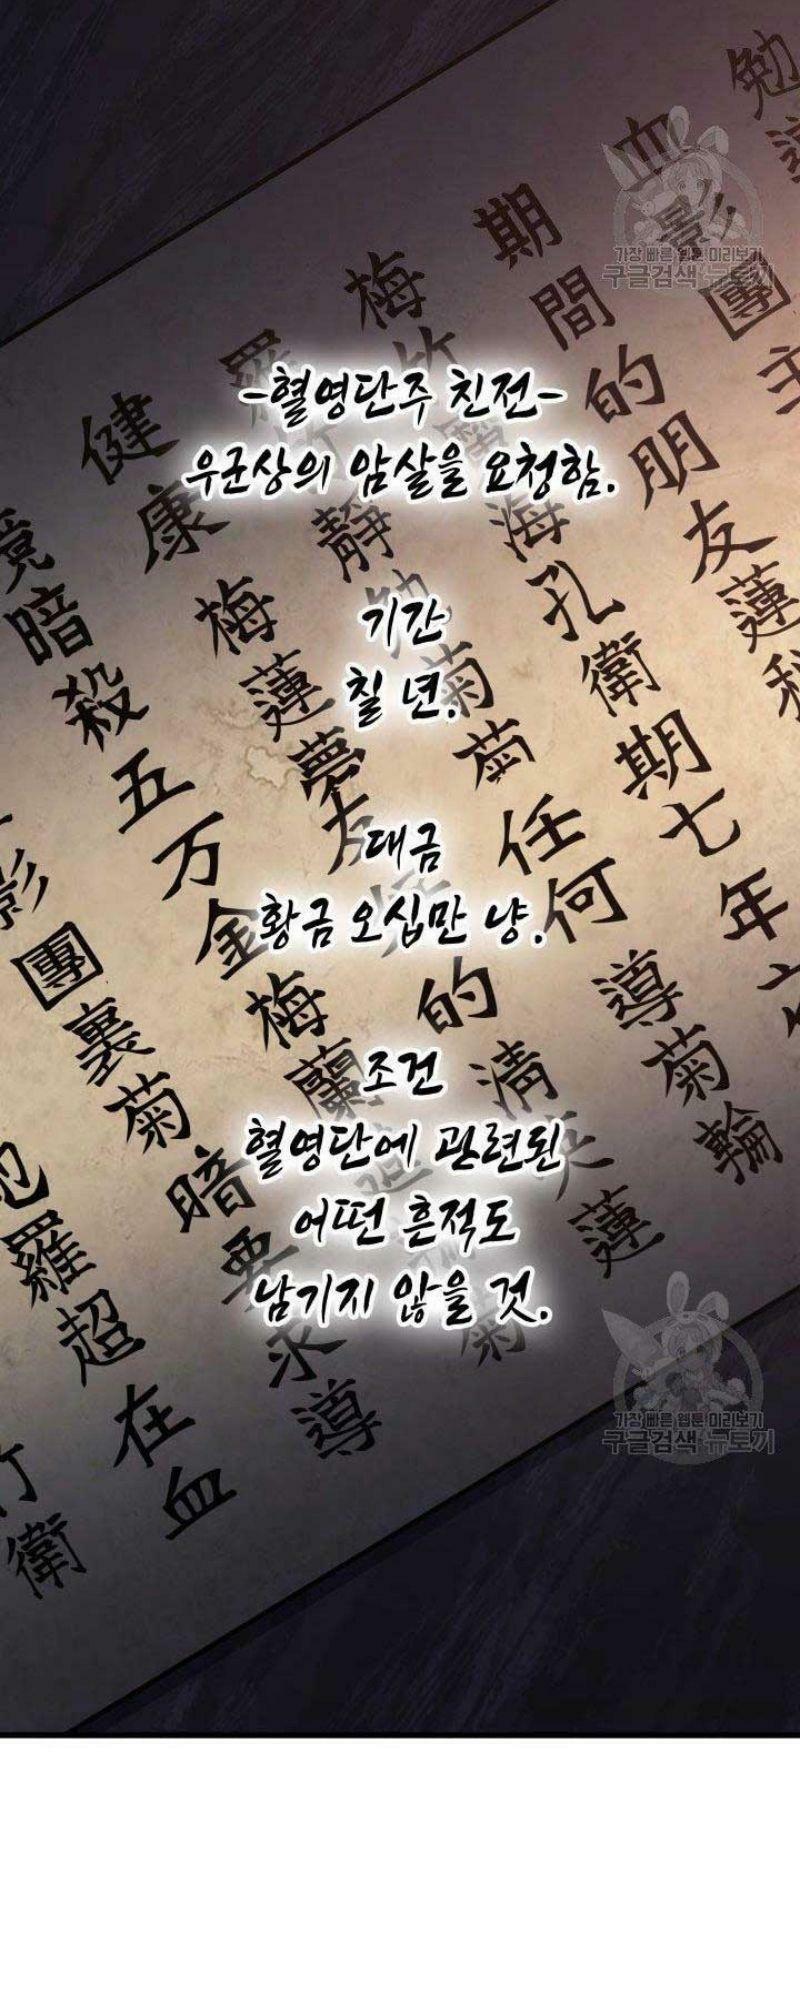 -혈영단주 친전-
우군상의 암살을 요청함.
기간
칠 년.
대금
황금 오십만 냥.
조건
혈영단에 관련된
어떤 흔적도
남기지 않을 것.
勉
血影團主
期間的朋友蓮
梅竹
海孔衛期七年
健康
靜勉菊菊任何導菊輪
梅蓮夢
暗殺五万金梅蘭
的清
蓮
影團裏菊暗要求導
羅超在血
衛
가장 빠른 웹툰 미리보기
구글검색 뉴토끼
가장 빠른 웹툰 미리보기
구글검색 뉴토끼